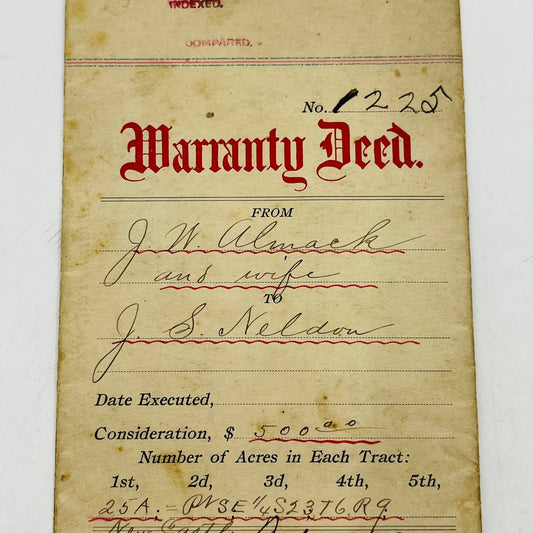 INDEXED.
COMPARED.
No. 1225
Warranty Deed.
FROM
J. W. Almack
and wife
TO
J. S. Neldon
Date Executed,
Consideration, $ 500.00
Number of Acres in Each Tract:
1st, 2d, 3d, 4th, 5th,
25A. = Pt SE 1/4 S23 T6. R9.
New Castle